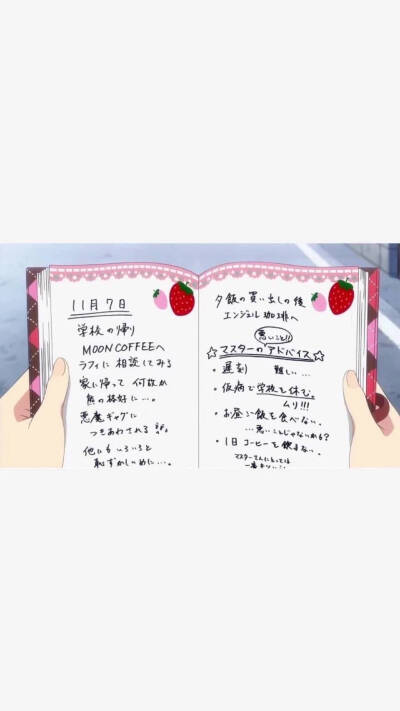 11月7日
学校の帰り
MOON COFFEEへ
ラフィに相談してみる
家に帰って 何故か
熊の格好に…。
悪魔ギャグに
つきあわされる
他にもいろいろと
恥ずかしいめに…。
夕飯の買い出しの後
エンジェル珈琲へ
悪いこと!!
☆マスターのアドバイス☆
・遅刻 難しい…
・仮病で学校を休む。
ムリ!!!
・お昼ご飯を食べない。
…悪いことじゃないかも?
・1日コーヒーを飲まない。
マスターさんにとっては